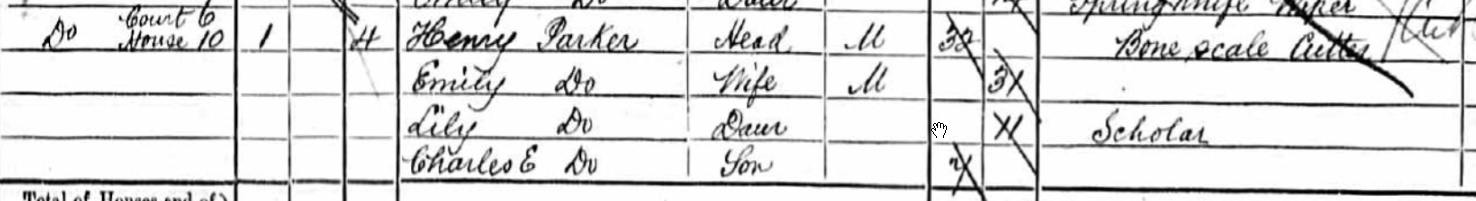 Emily Do Daur Spring Knife
Court 6
Do House 10 1 4 Henry Parker Head M 32 Bone scale Cutter
Emily Do Wife M 31
Lily Do Daur 11 Scholar
Charles E Do Son
Total of Houses and of